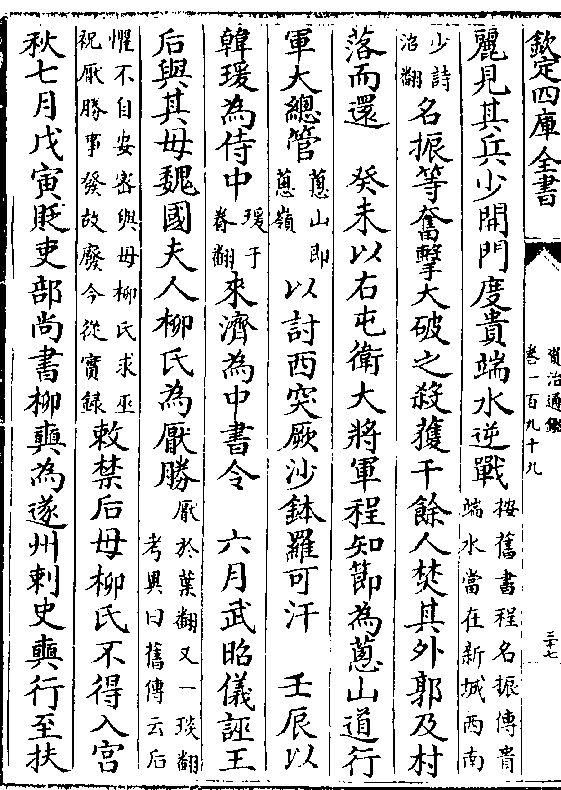 欽定四庫全書
資治通鑑
卷一百九十九
三十七
麗見其兵少開門度貴端水逆戰按舊書程名振傳貴端水當在新城西南
少詩沼翻名振等奮擊大破之殺獲千餘人焚其外郭及村
落而還　癸未以右屯衛大將軍程知節為蔥山道行
軍大總管蔥山即蔥嶺以討西突厥沙鉢羅可汗　壬辰以
韓瑗為侍中瑗于眷翻來濟為中書令　六月武昭儀誣王
后與其母魏國夫人柳氏為厭勝厭於葉翻又一琰翻考異曰舊傳云后
懼不自安密與母柳氏求巫祝厭勝事發故廢今從實錄敕禁后母柳氏不得入宮
秋七月戊寅貶吏部尚書柳奭為遂州刺史奭行至扶